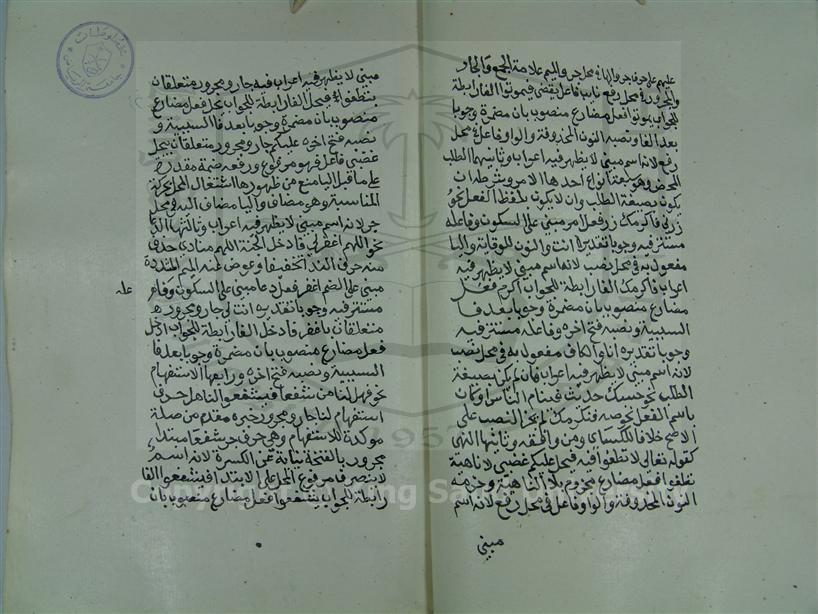 عليهم على حرف جر والهاء في محل جر والميم علامة الجمع والجار و
والمجرور في محل رفع نايب فاعل يقضى فيموتوا الفا رابطة
للجواب يموتوا فعل مضارع منصوب بان مضمرة وجوبا
بعد الفا ونصبه النون المحذوفة والواو فاعل في محل
رفع لانه اسم مبني لا يظهر فيه اعراب وثانيها الطلب
المحض وهو سبعة انواع احدها الامر وشرطه ان
يكون بصيغة الطلب وان لا يكون بلفظ الفعل نحو
زرني فاكرمك زر فعل امر مبني على السكون وفاعله
مستتر فيه وجوبا تقديره انت والنون للوقاية واليا
مفعول به في محل نصب لانها اسم مبني لا يظهر فيه
اعراب فاكرمك الفا رابطة للجواب اكرم فعل
مضارع منصوب بان مضمرة وجوبا بعد فا
السببية ونصبه فتح اخره وفاعله مستتر فيه
وجوبا تقديره انا والكاف مفعول به في محل نصب
لانه اسم مبني لا يظهر فيه اعراب فان لم يكن بصيغة
الطلب نحو حسبك حديث فينام الناس او كان
باسم الفعل نحو صه فنكرمك لم يجز النصب على
الاصح خلافا للكسائ ومن وافقه وثانيها النهي
كقوله تعالى لا تطغوا فيه فيحل عليكم غضبي لا ناهية
تطغوا فعل مضارع مجزوم بلا الناهية وجزمه
النون المحذوفة والواو فاعل في محل رفع لانه اسم
مبني
مبني لا يظهر فيه اعراب فيه جار ومجرور متعلقان
بتطغوا فيحل الفا رابطة للجواب يحل فعل مضارع
منصوب بان مضمرة وجوبا بعد فا السببية و
نصبه فتح اخره عليكم جار ومجرور متعلقان بيحل
غضبي فاعل فهو مرفوع ورفعه ضمة مقدرة
على ما قبل اليا منع من ظهورها اشتغال المحل بحركة
المناسبة وهو مضاف واليا مضاف اليه في محل
جر لانه اسم مبني لا يظهر فيه اعراب وثالثها الدعا
نحو اللهم اغفر لي فادخل الجنة اللهم منادى حذف
منه حرف الندا تخفيفا وعوض عنه الميم المشددة
مبني على الضم اغفر فعل دعا مبني على السكون وفاعله
مستتر فيه وجوبا تقديره انت لي جار ومجرور
متعلقان باغفر فادخل الفا رابطة للجواب ادخل
فعل مضارع منصوب بان مضمرة وجوبا بعد فا
السببية ونصبه فتح اخره ورابعها الاستفهام
نحو فهل لنا من شفعا فيشفعوا لنا هل حرف
استفهام لنا جار ومجرور خبره مقدم من صلة
موكدة للاستفهام وهي حرف جر شفعا مبتدا
مجرور بالفتحة نيابة عن الكسرة لانه اسم
لا ينصرف مرفوع المحل على الابتدا فيشفعوا الفا
رابطة للجواب يشفعوا فعل مضارع منصوب بان
Copyright © King Saud University
1957